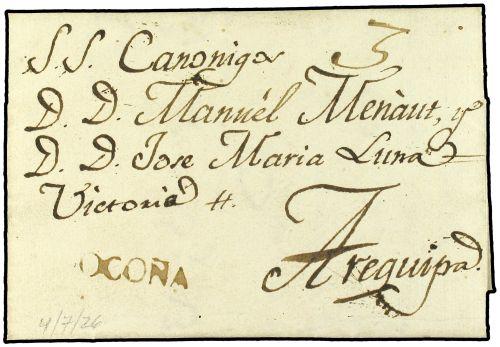 S S. Canonigos 3
D. D. Manuél Menàut, y
D. D. Jose Maria Luna
Victoria #.
Arequipa.
OCOÑA
4/7/26